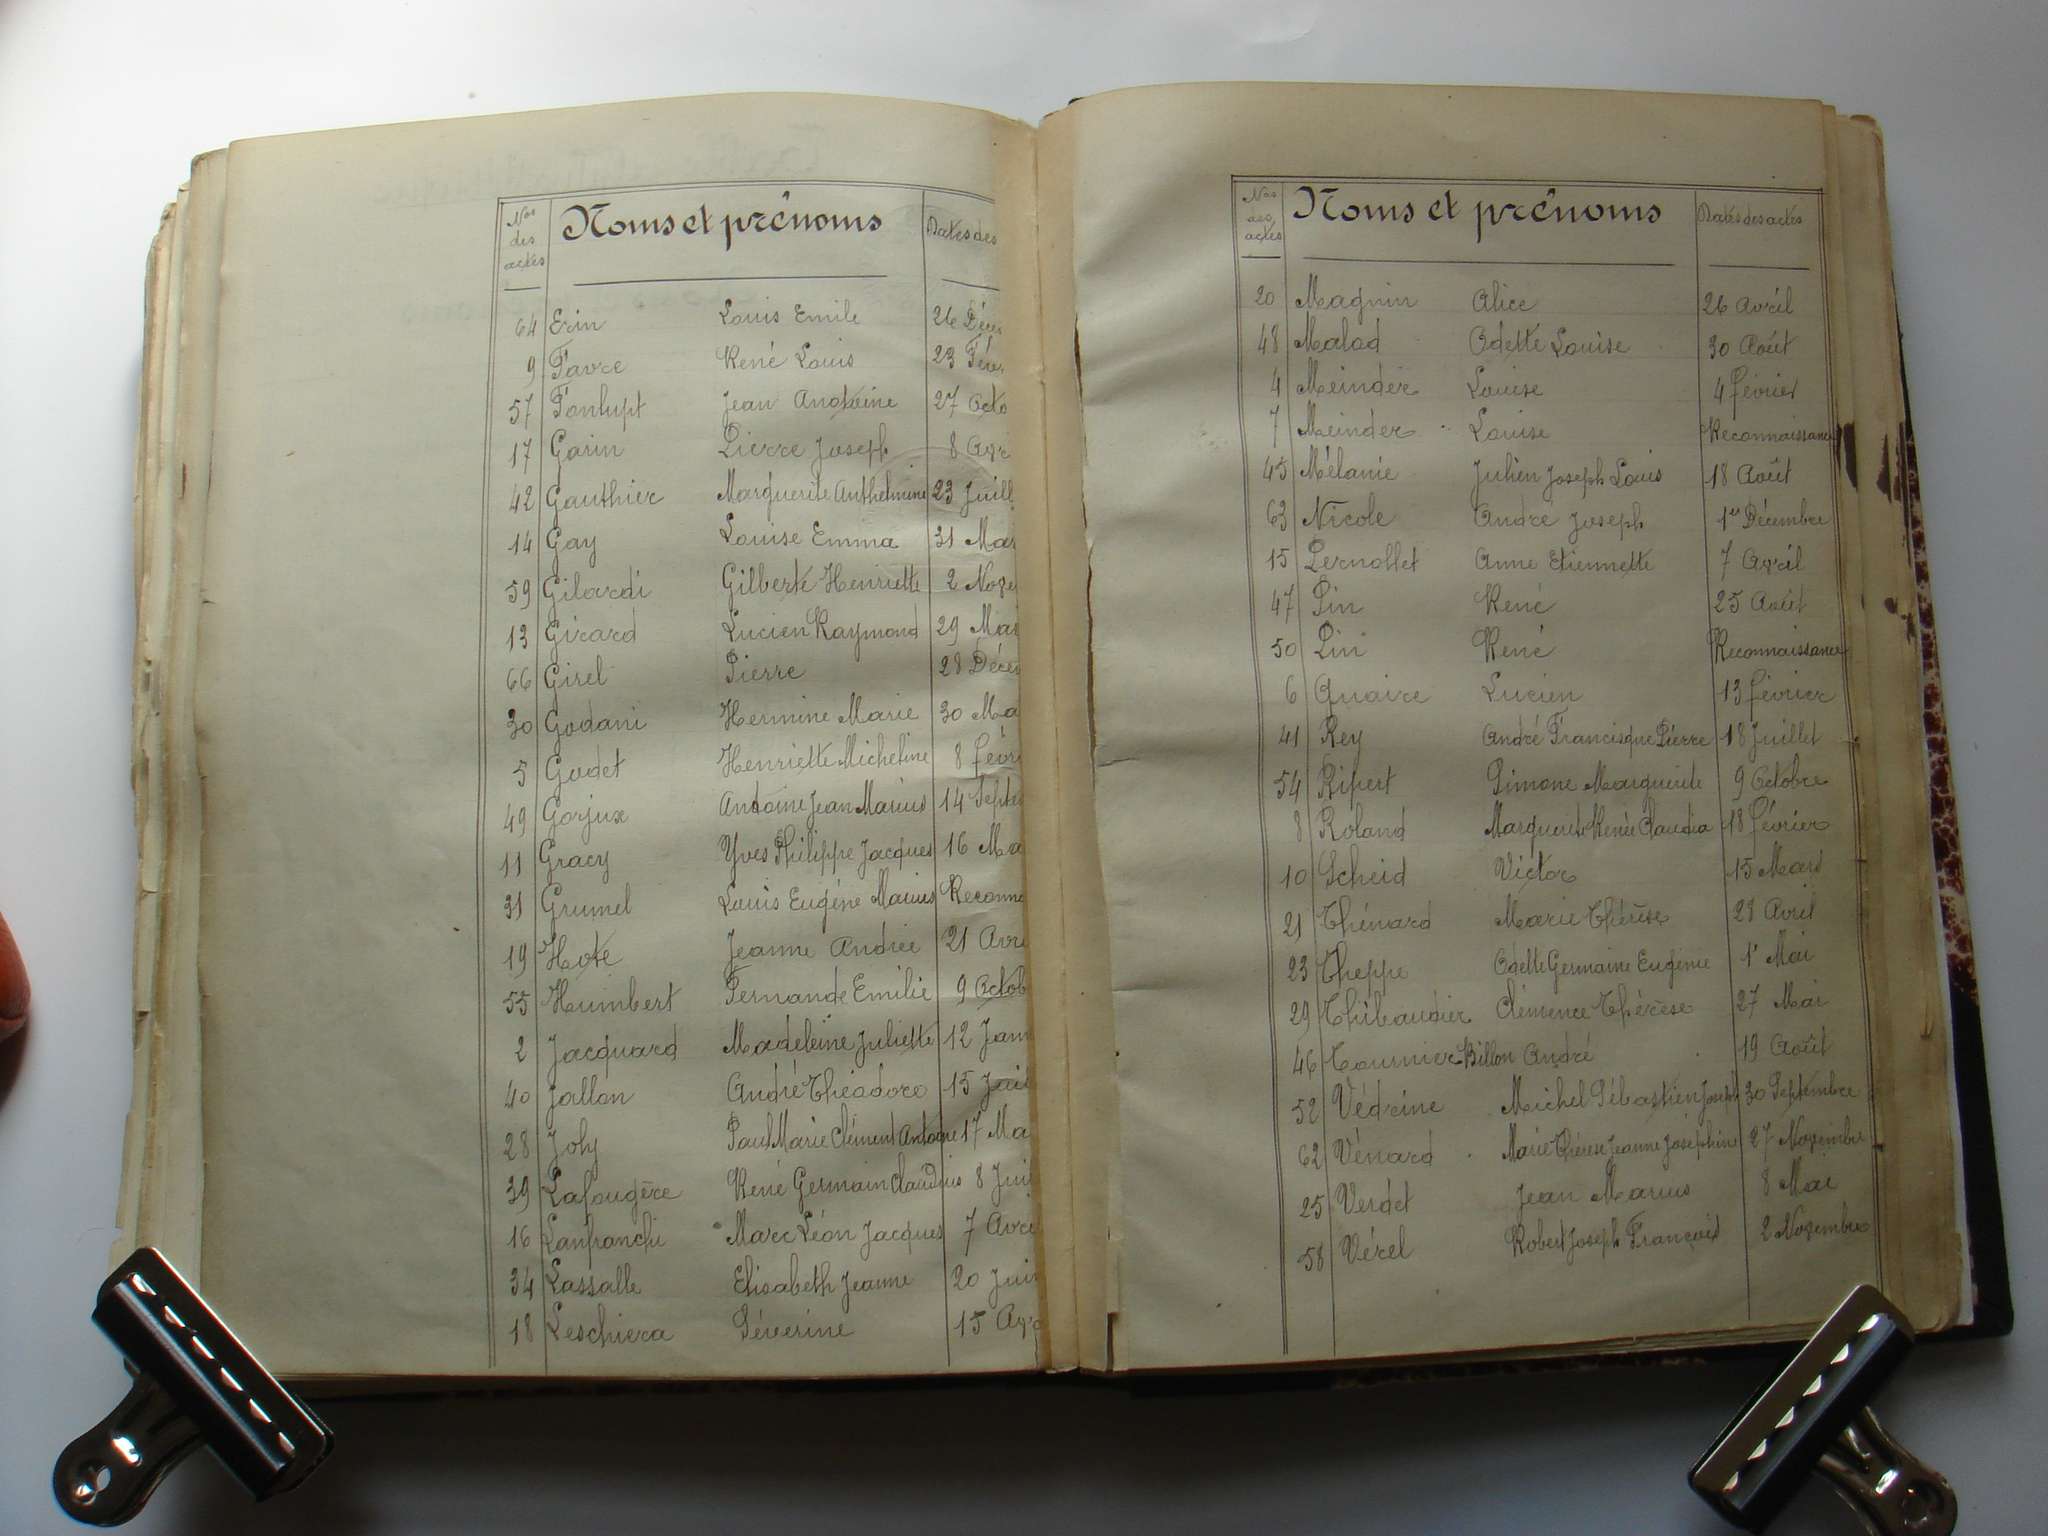 Nos des actes Noms et prénoms Dates des
64 Erin Louis Emile 26 Déce
9 Favre René Louis 23 Févr
57 Fontupt Jean Antoine 27 Octo
17 Garin Pierre Joseph 8 Avr
42 Gauthier Marguerite Anthelmine 23 Juill
14 Gay Louise Emma 31 Mar
59 Gilardi Gilberte Henriette 2 Nove
13 Girard Lucien Raymond 29 Mar
66 Girel Pierre 28 Décem
30 Godani Hermine Marie 30 Ma
5 Godet Henriette Micheline 8 févri
49 Gorjux Antoine Jean Marius 14 Septe
11 Gracy Yves Philippe Jacques 16 Ma
31 Grumel Louis Eugéne Marius Reconna
19 Hote Jeanne Andrée 21 Avri
55 Humbert Fernande Emilie 9 Octob
2 Jacquard Madeleine Juliette 12 Janv
40 Jallon André Théodore 15 Juil
28 Joly Paul Marie Clément Antoine 17 Ma
39 Lafougère René Germain Claudius 8 Juil
16 Lanfranchi Marc Léon Jacques 7 Avri
34 Lassalle Elisabeth Jeanne 20 Juin
18 Leschiera Séverine 15 Avr
Nos des actes Noms et prénoms Dates des actes
20 Magnin Alice 26 Avril
48 Malod Odette Louise 30 Août
4 Meinder Louise 4 février
7 Meinder Louise Reconnaissance
45 Mélanie Julien Joseph Louis 18 Août
63 Nicole André Joseph 1er Décembre
15 Pernollet Anne Etiennette 7 Avril
47 Pin René 25 Août
50 Pin René Reconnaissance
6 Quaire Lucien 13 février
41 Rey André Francisque Pierre 18 Juillet
54 Ripert Simone Marguerite 9 Octobre
8 Roland Marguerite Renée Claudia 18 février
10 Scheid Victor 15 Mars
21 Thénard Marie Thérèse 28 Avril
23 Theppe Odette Germaine Eugénie 1r Mai
29 Thibaudier Clémence Thérèse 27 Mai
46 Tournier Billon André 19 Août
52 Védrine Michel Sébastien Joseph 30 Septembre
62 Vénard Marie Thérèse Jeanne Joséphine 27 Novembre
25 Verdet Jean Marius 8 Mai
58 Vérel Robert Joseph François 2 Novembre